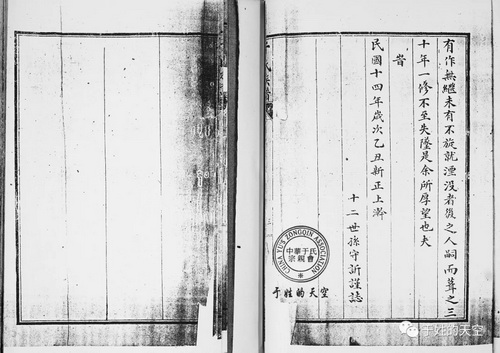 有作無繼未有不旋就湮没者後之人嗣而葺之三
十年一修不至失墜是余所厚望也夫
旹
民國十四年歲次乙丑新正上澣
十二世孫守訢謹誌
CHINA YU'S ZONGQIN ASSOCIATION
中華于氏
宗親會
于姓的天空
于姓的天空